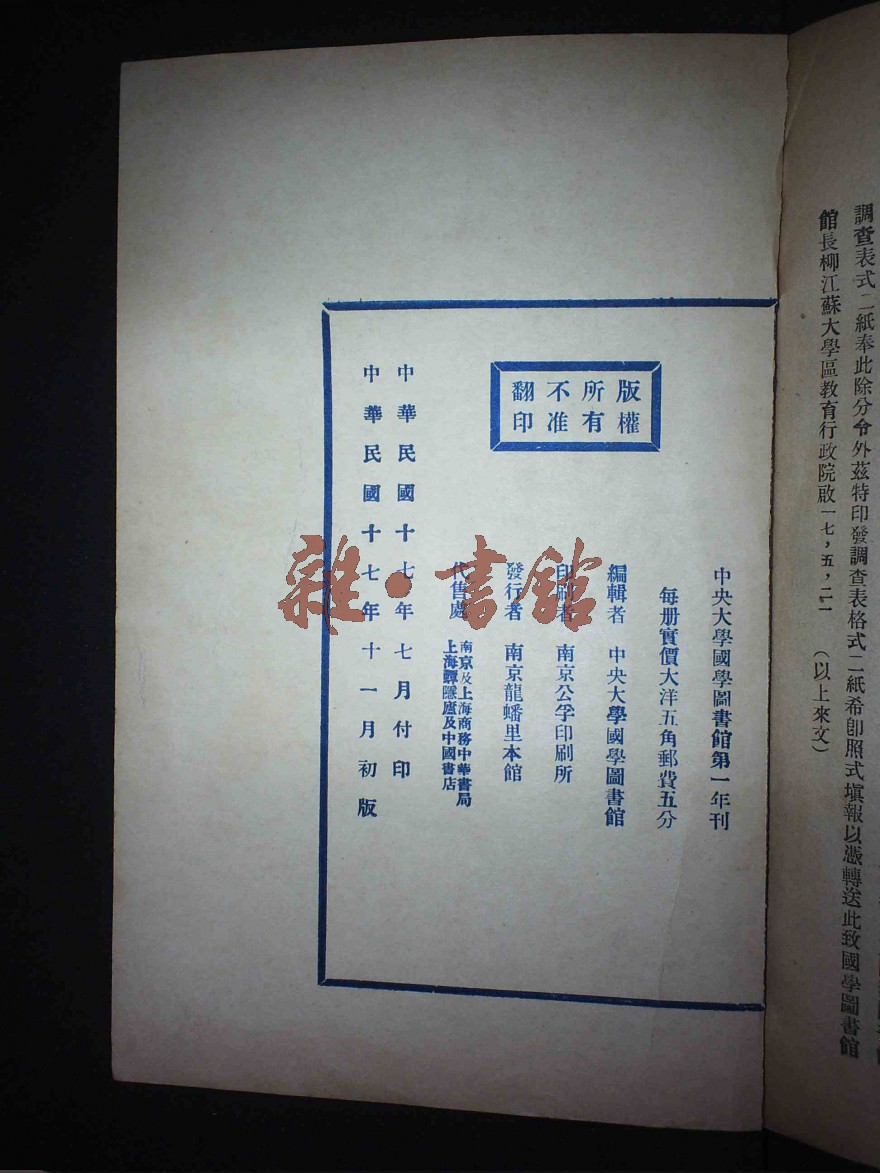 調查表式二紙奉此除分令外茲特印發調查表格式二紙希卽照式塡報以憑轉送此致國學圖書館
館長柳江蘇大學區教育行政院啟一七，五，二一　（以上來文）
版權
所有
不准
翻印
中央大學國學圖書館第一年刊
每册實價大洋五角郵費五分
編輯者　中央大學國學圖書館
印刷者　南京公孚印刷所
發行者　南京龍蟠里本館
代售處　南京及上海商務中華書局
上海蟫隱廬及中國書店
中華民國十七年七月付印
中華民國十七年十一月初版
雜·書館